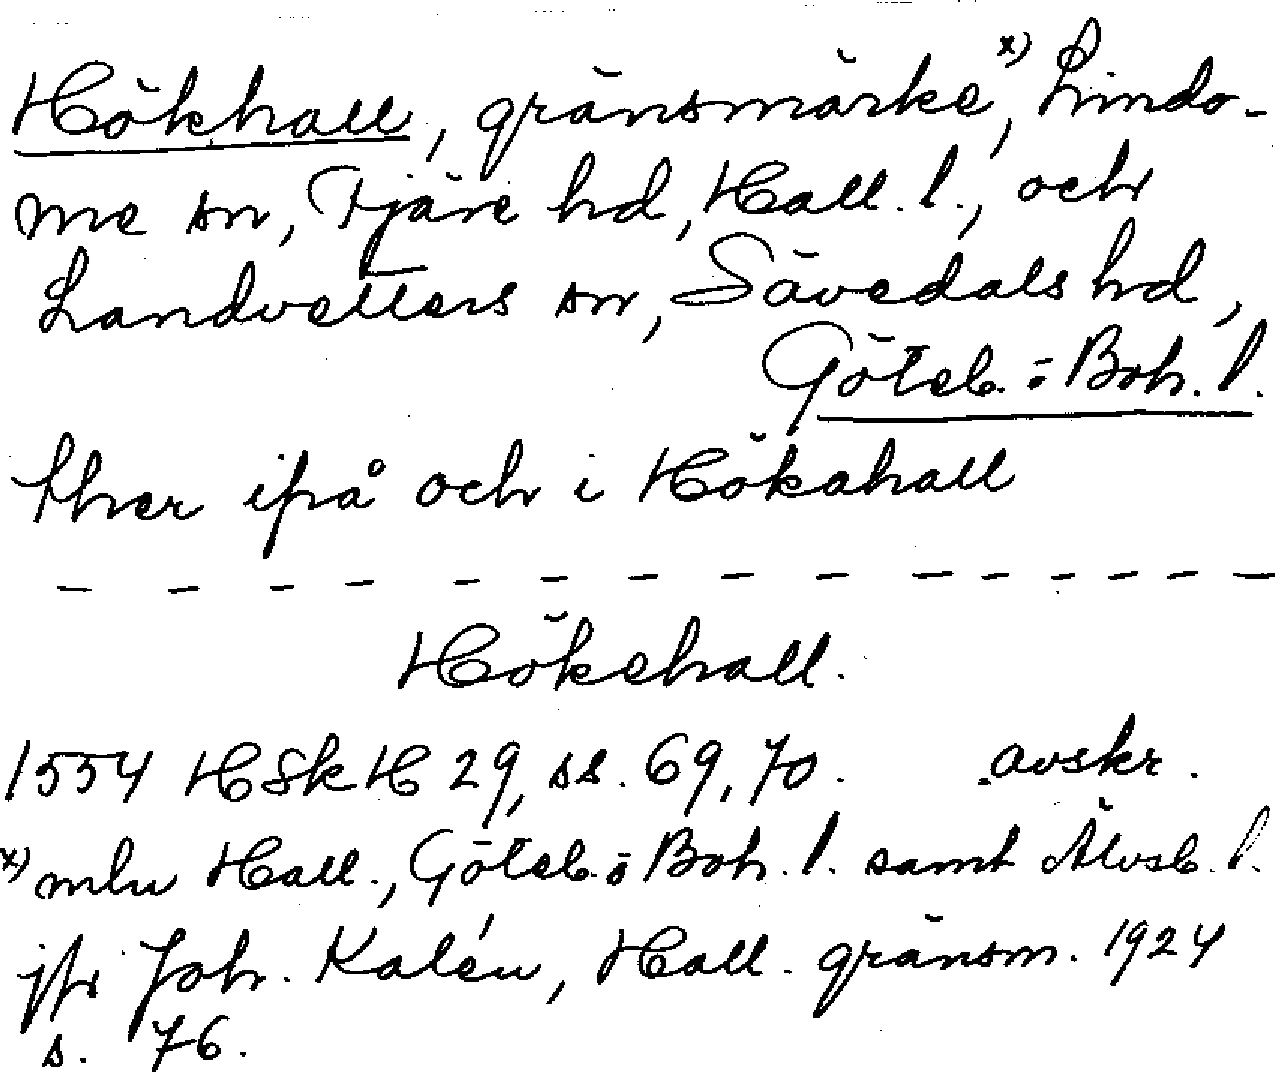 Hökhall, gränsmärke x), Lindo-
me sn, Fjäre hd, Hall. l., och
Landvetters sn, Sävedals hd,
Göteb. o Boh. l.
ther ipå och i Hökahall
— — — — — — — — — — — — — —
Hökehall.
1554 HSkH 29, ss. 69, 70. avskr.
x) mlu Hall., Göteb. o Boh. l. samt Älvsb. l.
jfr Joh. Kalén, Hall. gränsm. 1924
s. 76.